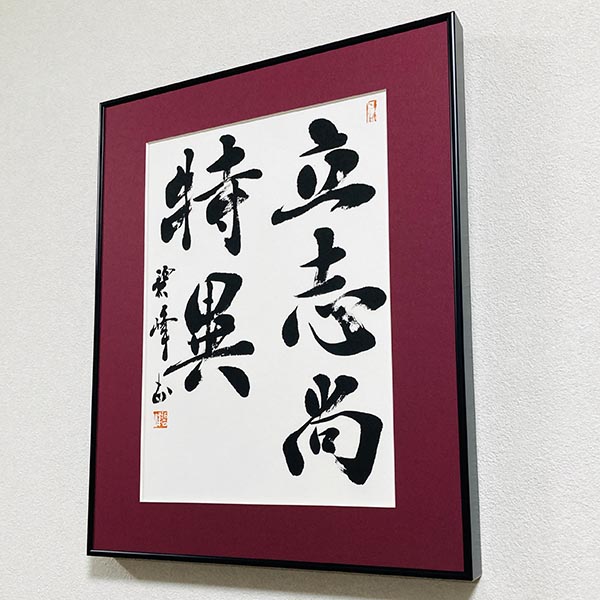 立志尚
特異
碧峰書